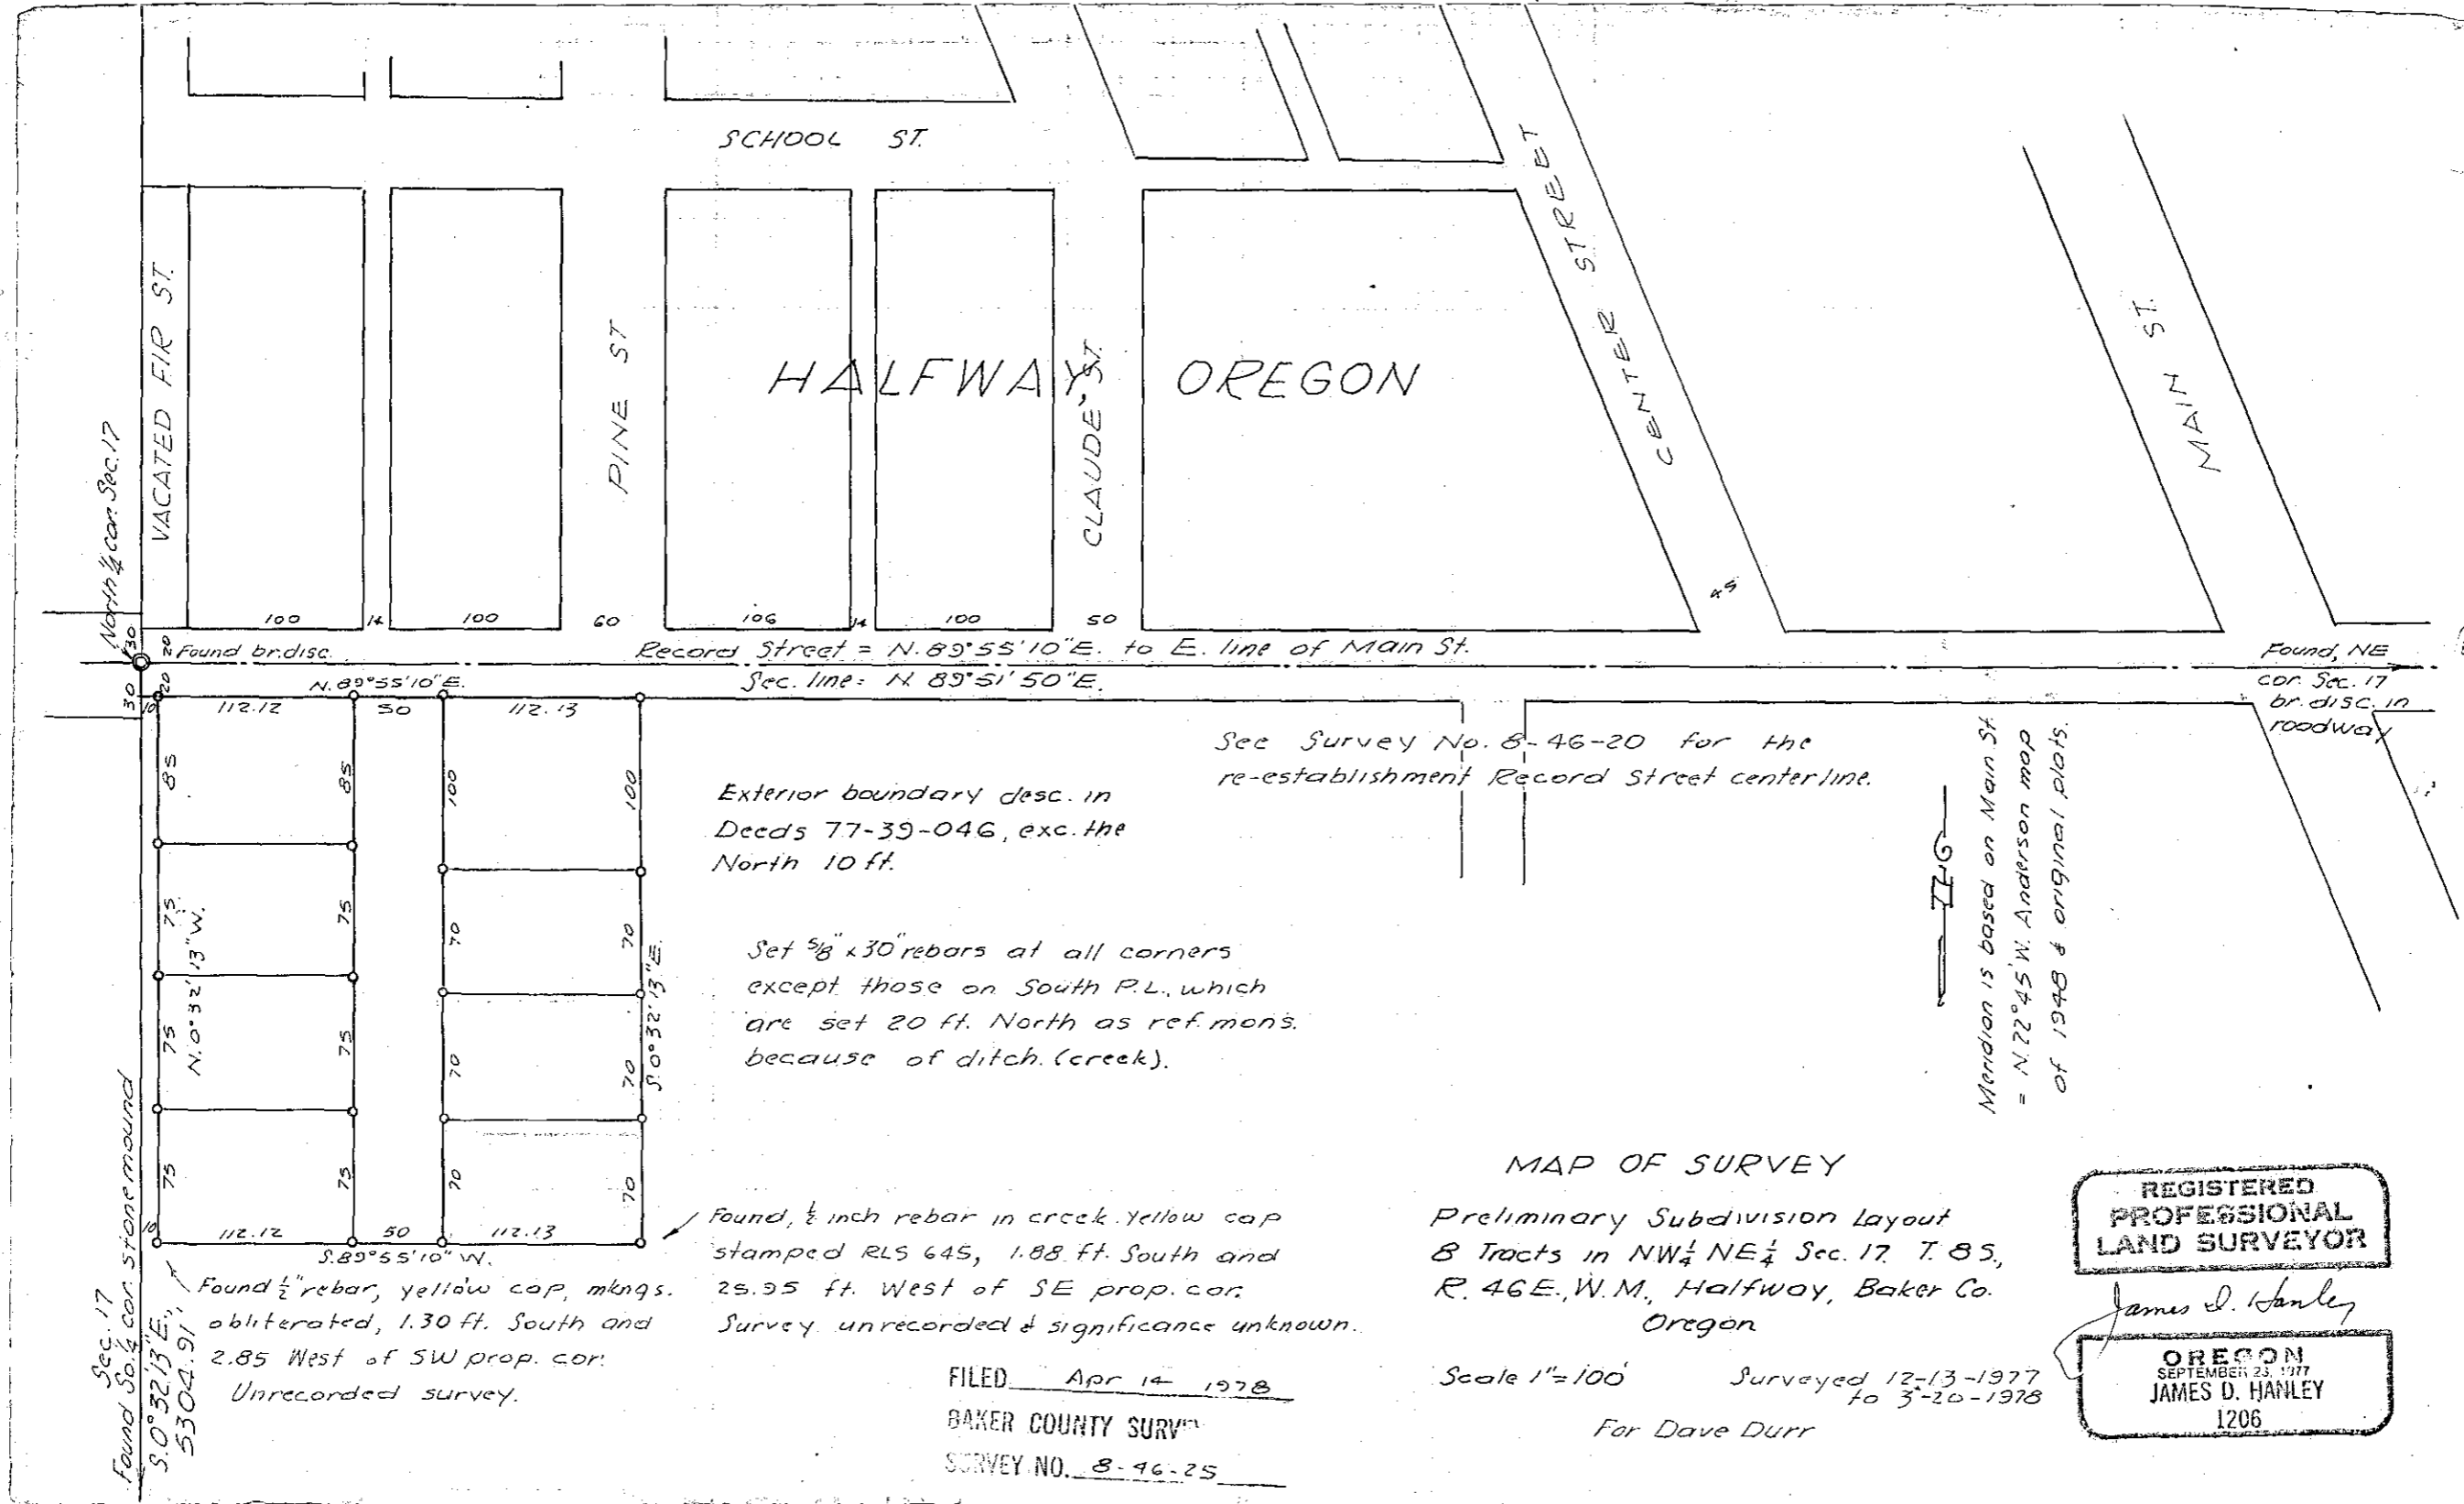 SCHOOL ST.
VACATED FIR ST.
PINE ST
CLAUDE ST.
CENTER STREET
MAIN ST.
HALFWAY OREGON
North ¼ cor. Sec. 17
100
14
100
60
106
14
100
50
45
30
20
Found br. disc.
Record Street = N. 89°55'10"E. to E. line of Main St.
Found, NE
cor. Sec. 17
br. disc. in
roadway
30
20
10
N. 89°55'10"E.
Sec. line = N 89°51'50"E.
112.12
50
112.13
85
85
100
100
75
75
70
70
N. 0°32'13"W.
S. 0°32'13"E.
75
75
70
70
75
75
70
70
10
112.12
50
112.13
S. 89°55'10" W.
See Survey No. 8-46-20 for the
re-establishment Record Street centerline.
Exterior boundary desc. in
Deeds 77-39-046, exc. the
North 10 ft.
Set ⅝" x 30" rebars at all corners
except those on South P.L., which
are set 20 ft. North as ref. mons.
because of ditch. (creek).
Meridian is based on Main St.
= N. 22°45' W. Anderson map
of 1948 & original plats.
Found, ½ inch rebar in creek. Yellow cap
stamped RLS 645, 1.88 ft. South and
25.95 ft. West of SE prop. cor.
Survey unrecorded & significance unknown.
Found ½" rebar, yellow cap, mkngs.
obliterated, 1.30 ft. South and
2.85 West of SW prop. cor.
Unrecorded survey.
Sec. 17
Found So. ¼ cor. stone mound
S. 0°32'13"E.,
5304.91'
FILED Apr 14 1978
BAKER COUNTY SURV
SURVEY NO. 8-46-25
MAP OF SURVEY
Preliminary Subdivision Layout
8 Tracts in NW¼ NE¼ Sec. 17. T. 8 S.,
R. 46 E., W.M., Halfway, Baker Co.
Oregon
Scale 1"=100'
Surveyed 12-13-1977
to 3-20-1978
For Dave Durr
REGISTERED
PROFESSIONAL
LAND SURVEYOR
James D. Hanley
OREGON
SEPTEMBER 23, 1977
JAMES D. HANLEY
1206